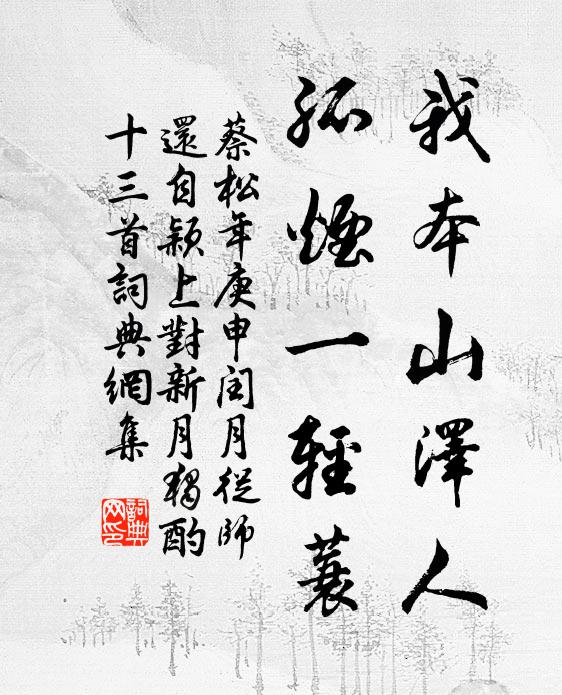 我本山澤人
孤煙一輕蓑
蔡松年庚申閏月從師
還自颍上對新月獨酌
十三首詞典網集
詞典
网印